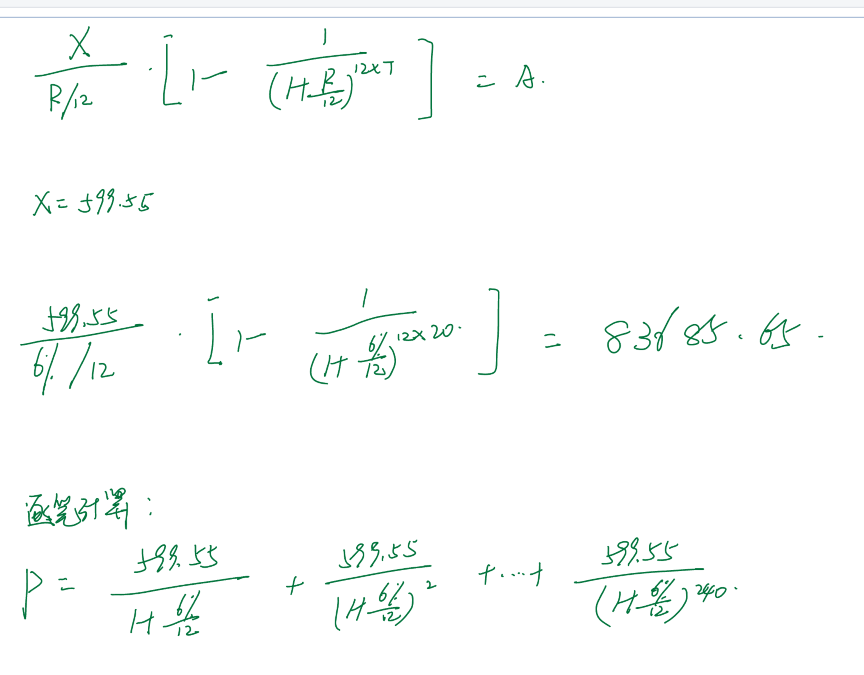 X/(R/12) · [1 - 1/(1+R/12)^(12×T)] = A.
X = 599.55
599.55/(6%/12) · [1 - 1/(1+6%/12)^(12×20)] = 83685.65.
逐笔计算：
P = 599.55/(1+6%/12) + 599.55/(1+6%/12)^2 + ... + 599.55/(1+6%/12)^240.